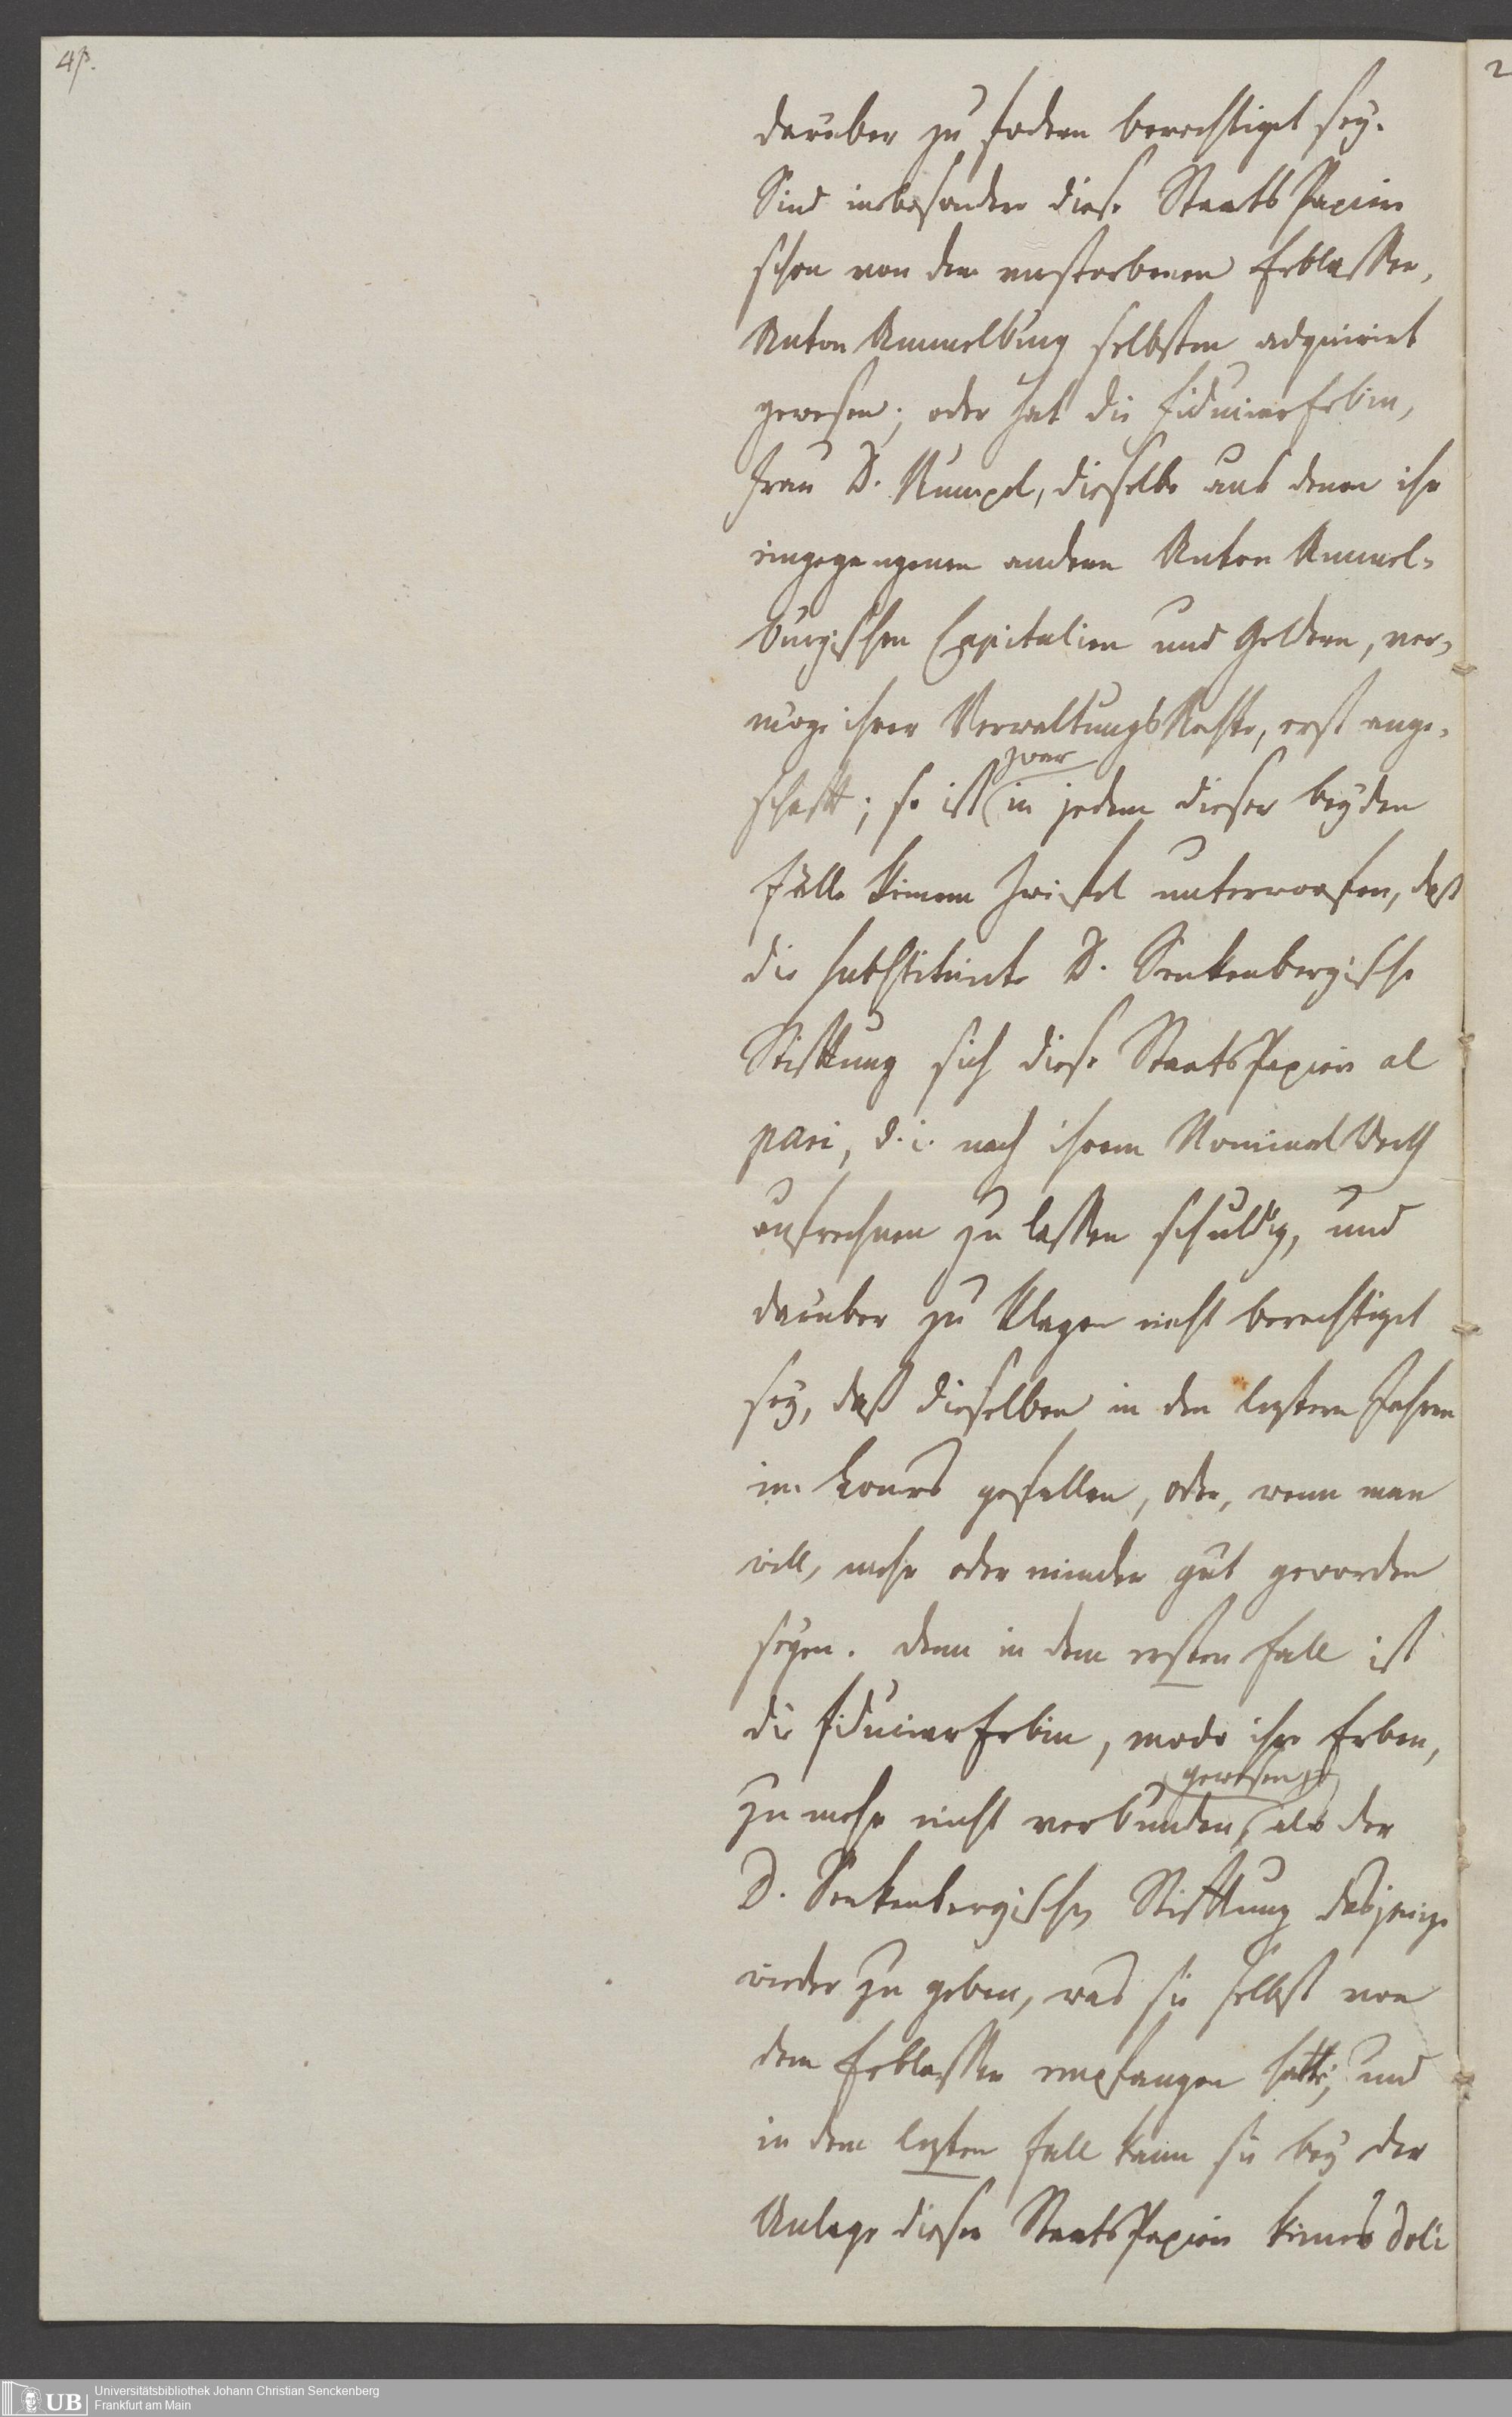 4p.
2
darüber zu fodern berechtiget sey.
Sind insbesondere diese Staats Papiere
schon von dem verstorbenen Erblasser,
Anton Ammelburg selbsten adquirirt
gewesen; oder hat die Fiduciar Erbin,
Frau D. Rumpel, dieselbe aus denen ihr
eingegangenen andern Anton Ammel-
burgischen Capitalien und Geldern, ver-
möge ihrer Verwaltungs Rechte, erst ange-
schafft; so ist zwar in jedem dieser beyden
Fälle keinem Zweifel unterworfen, daß
die substituirte D. Senkenbergische
Stiftung sich diese Staats Papiere al
pari, d. i. nach ihrem Nominal Werth
aufrechnen zu lassen schuldig, und
darüber zu klagen nicht berechtiget
sey, daß dieselben in den leztern Jahren
im Cours gefallen, oder, wenn man
will, mehr oder minder gut geworden
seyen. Denn in dem ersten Fall ist
die Fiduciar Erbin, modo ihre Erben,
zu mehr nicht verbunden gewesen, als der
D. Senkenbergischen Stiftung dasjenige
wieder zu geben, was sie selbst von
dem Erblasser empfangen hatte; und
in dem lezten Fall kann sie bey der
Anlage dieser Staats Papiere keines doli
Universitätsbibliothek Johann Christian Senckenberg
Frankfurt am Main
UB